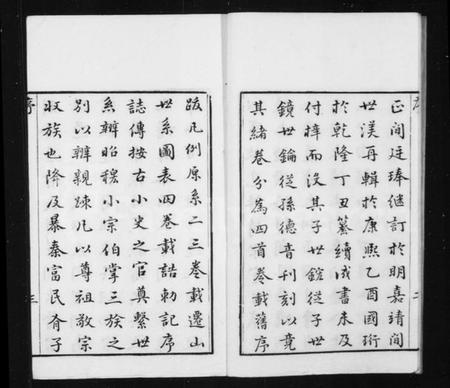 序
正間廷琫继訂於明嘉靖間
世渼再輯於康熙乙酉國珩
於乾隆丁丑纂續成書未及
付梓而沒其子世錠從子世
鏡世錀從孫德音刊刻以竟
其緒卷分為四首卷載舊序
二
跋凡例原系二三卷載遷山
世系圖表四卷載誥勅記序
誌傳按古小史之官奠繫世
系辨昭穆小宗伯掌三族之
別以辨親踈凡以尊祖敬宗
收族也降及暴秦富民有子
序
三